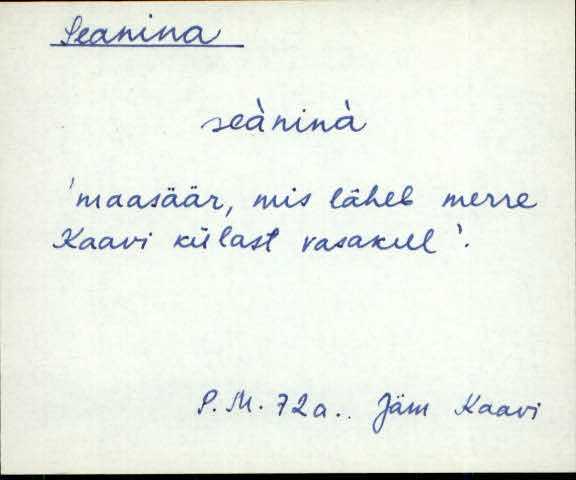 Seanina
seàninà
'maasäär, mis läheb merre
Kaavi külast vasakul'.
P.M. 72a.. Jäm Kaavi